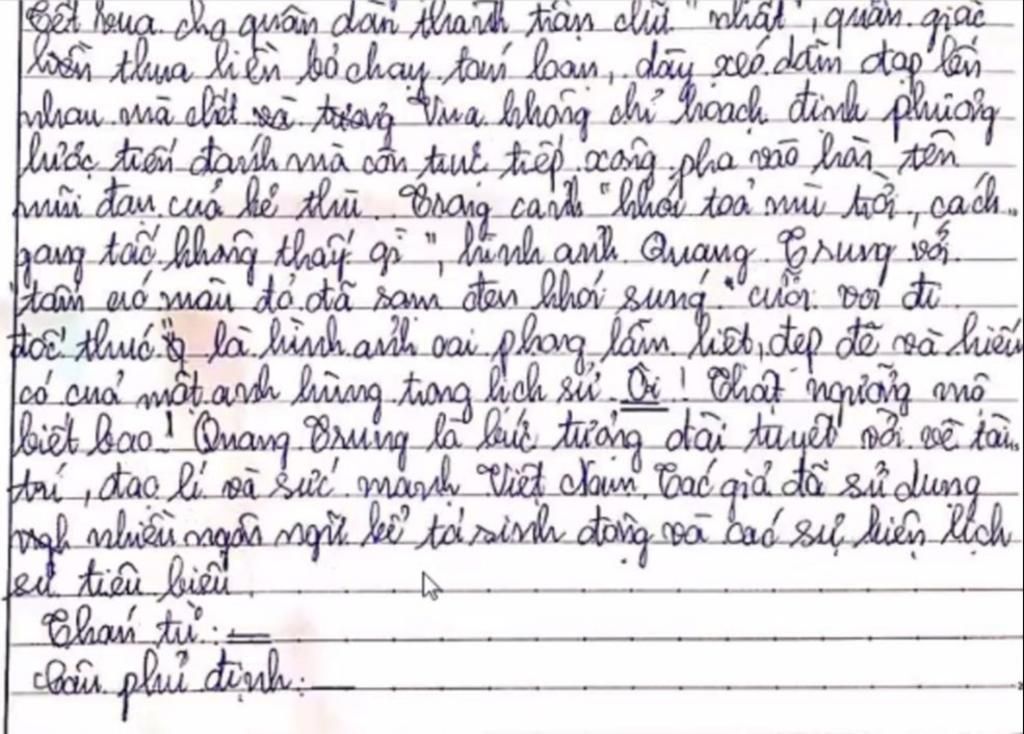 quân dàn thành trận chữ "nhất", quân giặc
thua liền bỏ chạy tán loạn, dày xéo dẫm đạp lên
nhau mà chết và tướng Vua không chỉ hoạch định phương
lược tiến đánh mà còn trực tiếp xông pha vào hàn tên
mũi đạn của kẻ thù. Trong cảnh "khói toả mù trời, cách
gang tấc không thấy gì", hình ảnh Quang Trung với
tấm áo màu đỏ đã sam đen khói súng " cưỡi voi đi
đốc thúc" là hình ảnh oai phong lẫm liệt, đẹp đẽ và hiếm
có của một anh hùng trong lịch sử. Ôi! Thật ngưỡng mộ
biết bao! Quang Trung là bức tượng đài tuyệt vời về tài
trí, đạo lí và sức mạnh Việt Nam. Tác giả đã sử dụng
ngh nhiều ngôn ngữ kể tả sinh động và các sự kiện lịch
sử tiêu biểu.
Thán từ:
Câu phủ định: